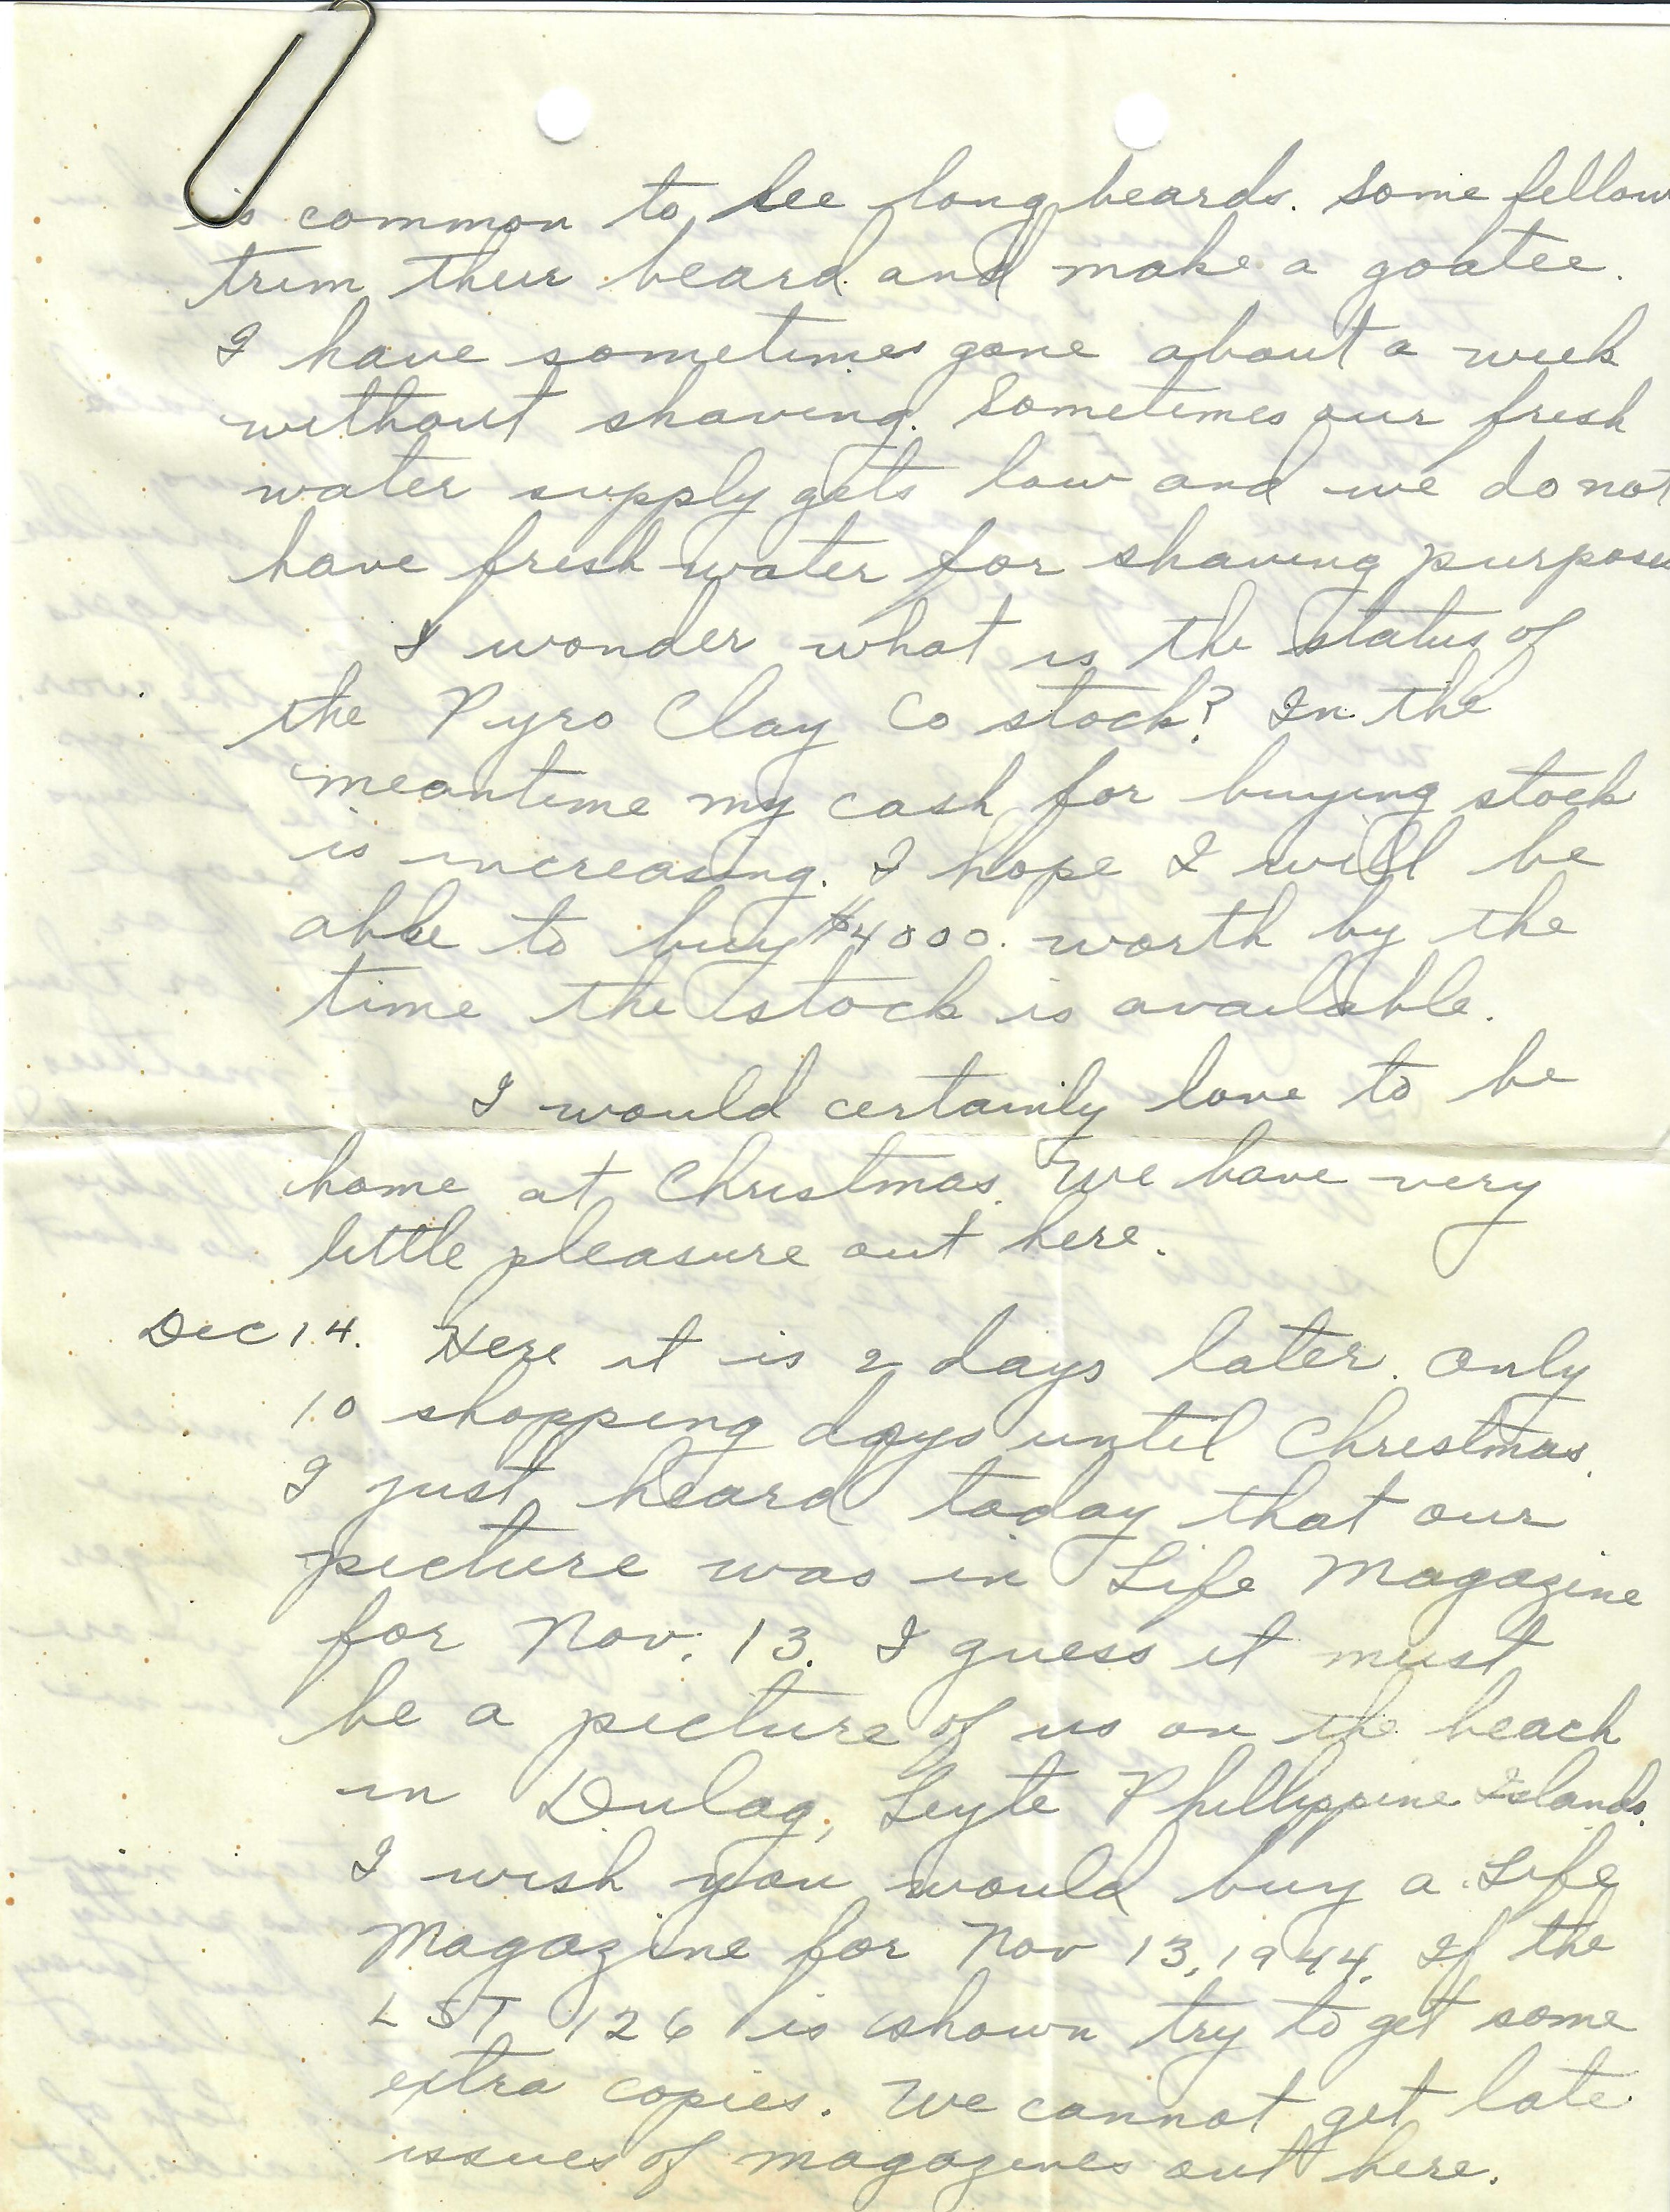 is common to see long beards. Some fellow
trim their beard and make a goatee.
I have sometimes gone about a week
without shaving. Sometimes our fresh
water supply gets low and we do not
have fresh water for shaving purposes
I wonder what is the status of
the Pyro Clay Co stock? In the
meantime my cash for buying stock
is increasing. I hope I will be
able to buy $4000. worth by the
time the stock is available.
I would certainly love to be
home at Christmas. We have very
little pleasure out here.
Dec 14. Here it is 2 days later. Only
10 shopping days until Christmas.
I just heard today that our
picture was in Life Magazine
for Nov. 13. I guess it must
be a picture of us on the beach
in Dulag, Leyte Phillippine Islands.
I wish you would buy a Life
Magazine for Nov 13, 1944. If the
LST 126 is shown try to get some
extra copies. We cannot get late
issues of magazines out here.